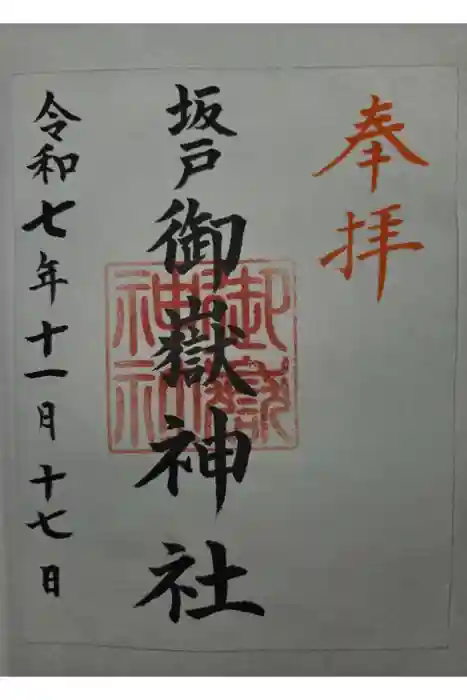 奉拝
坂戸
御嶽神社
御嶽
神社
令和七年十一月十七日